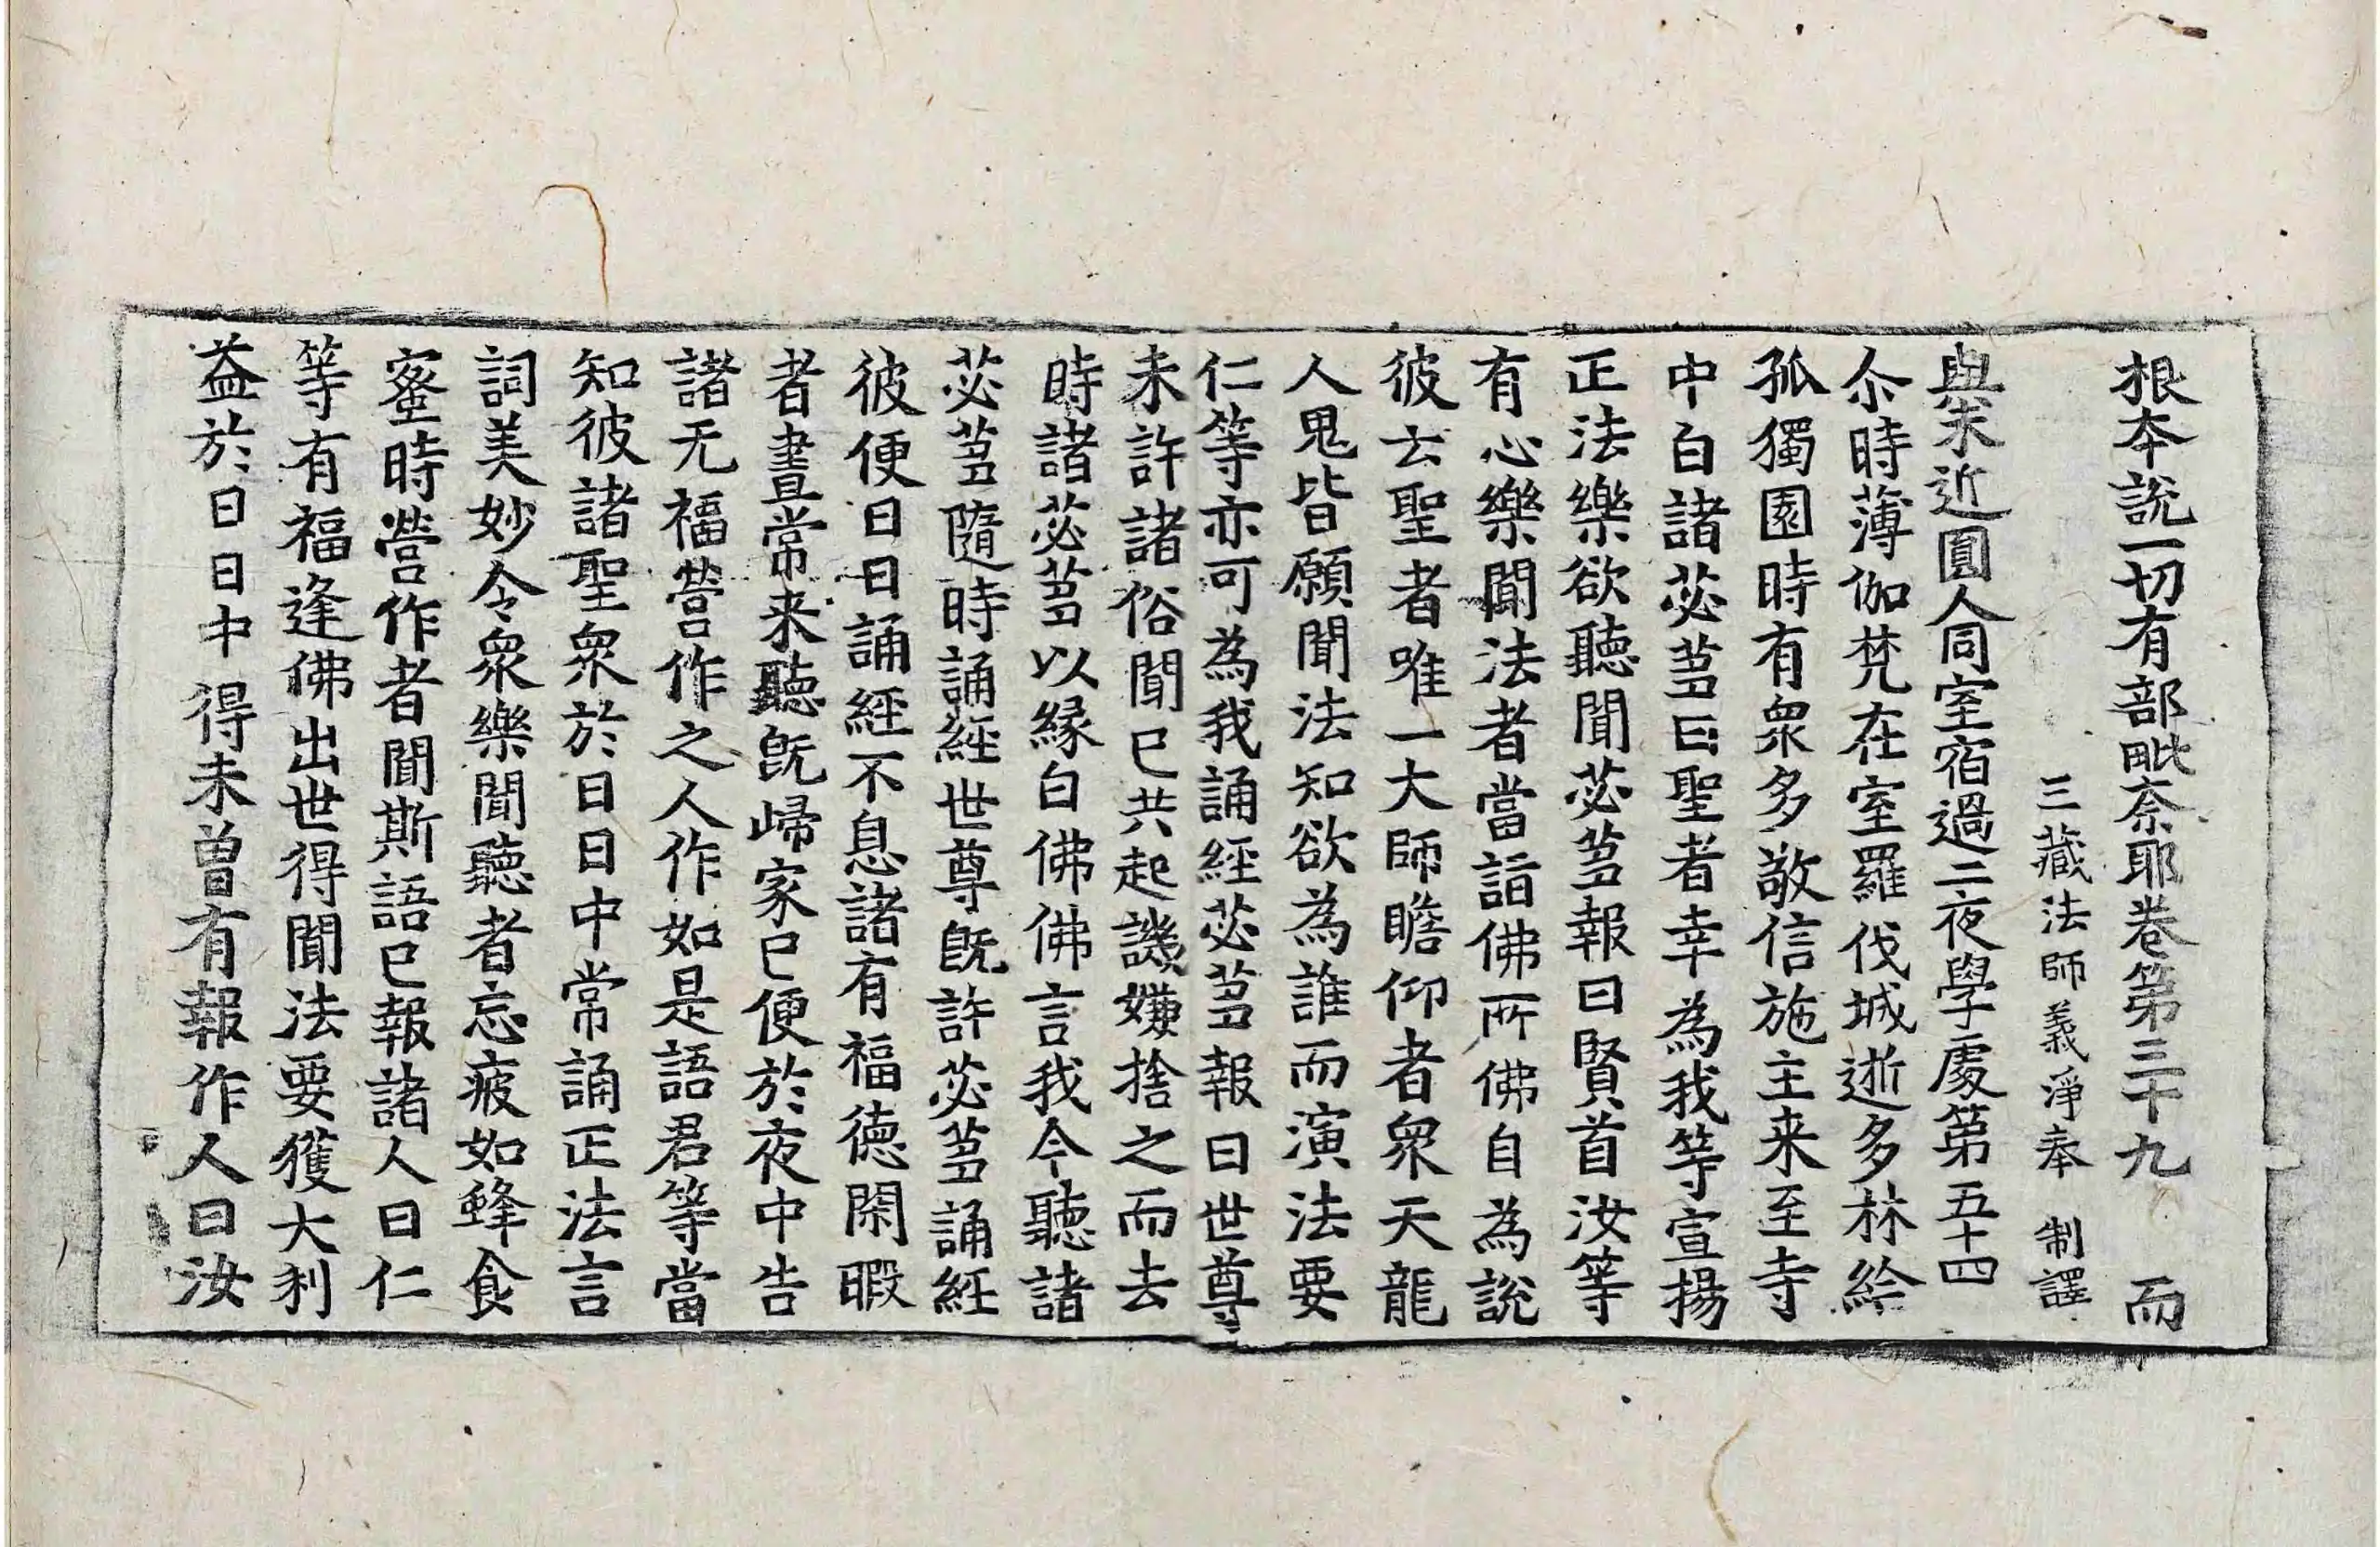 根夲說一切有部毗奈耶卷第三十九 而
三藏法師義淨奉 制譯
與未近圓人同室宿過二夜學處第五十四
尒時薄伽梵在室羅伐城逝多林給
孤獨園時有衆多敬信施主来至寺
中白諸苾蒭曰聖者幸為我等宣揚
正法樂欲聽聞苾蒭報曰賢首汝等
有心樂聞法者當詣佛所佛自為說
彼云聖者唯一大師瞻仰者衆天龍
人鬼皆願聞法知欲為誰而演法要
仁等亦可為我誦經苾蒭報曰世尊
未許諸俗聞已共起譏嫌捨之而去
時諸苾蒭以縁白佛佛言我今聽諸
苾蒭隨時誦經世尊旣許苾蒭誦經
彼便日日誦經不息諸有福德閑暇
者晝常来聽旣歸家已便於夜中告
諸无福營作之人作如是語君等當
知彼諸聖衆於日日中常誦正法言
詞美妙令衆樂聞聽者忘疲如蜂食
蜜時營作者聞斯語已報諸人曰仁
等有福逢佛出世得聞法要獲大利
益於日日中得未曾有報作人曰汝